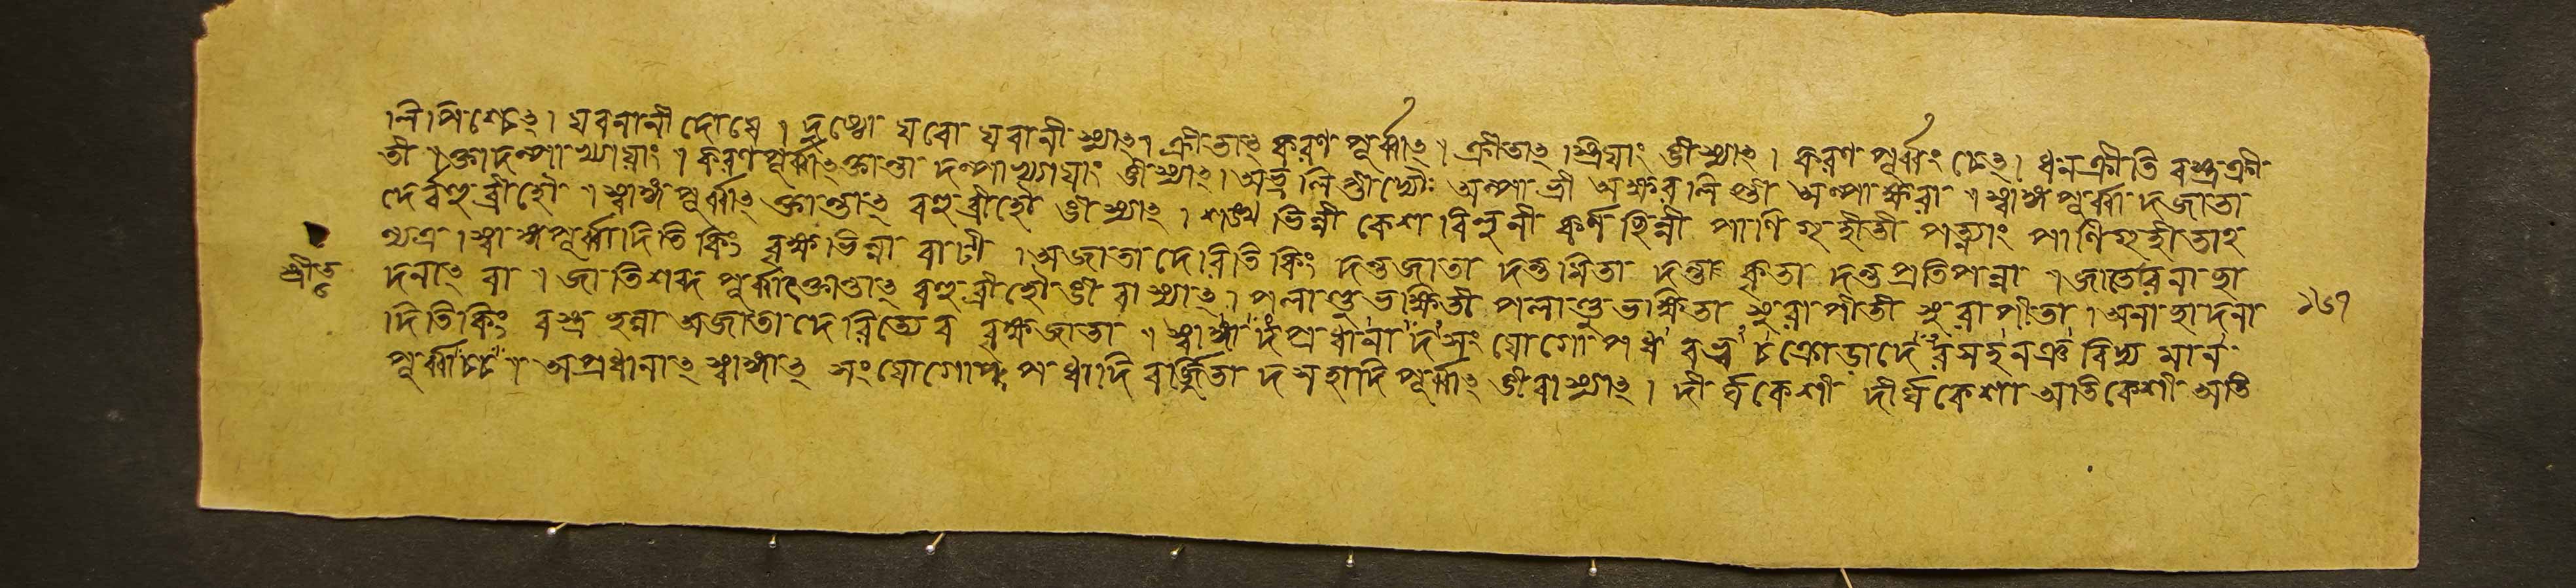 লিপিশ্চেৎ। যবনানী দোষে। দুষ্টো যবো যবানী স্যাৎ। ক্রীতাৎ করণপূর্ব্বাৎ। ক্রীতাৎ স্ত্রিয়াং ঙীস্যাৎ। করণপূর্ব্বং চেৎ। ধনক্রীতি বস্ত্রক্রী
তী। ক্তাদল্পাখ্যায়াং। করণপূর্ব্বাৎ ক্তান্তাদল্পাখ্যায়াং ঙীস্যাৎ। অভ্রলিপ্তী দ্যৌঃ অল্পাভ্রী অক্ষরলিপ্তা অল্পাক্ষরা। স্বাঙ্গপূর্ব্বাদজাতা
দের্বহুব্রীহৌ। স্বাঙ্গপূর্ব্বাৎ ক্তান্তাৎ বহুব্রীহৌ ঙীস্যাৎ। শঙ্খভিন্নী কেশবিলূনী কর্ণছিন্নী পাণিগৃহীতী পত্ন্যাং পাণিগৃহীতাহ
ন্যত্র। স্বাঙ্গপূর্ব্বাদিতি কিং বৃক্ষভিন্না বাটী। অজাতাদেরিতি কিং দন্তজাতা দন্তমিতা দন্তাঃ কৃতা দন্তপ্রতিপন্না। জাতেরনাছা
দনাৎ বা। জাতিশব্দপূর্ব্বাৎ ক্তান্তাৎ বহুব্রীহৌ ঙীবাস্যাৎ। পলাণ্ডুভক্ষিতী পলাণ্ডুভক্ষিতা সুরাপীতী সুরাপীতা। অনাছাদনা
দিতি কিং বস্ত্রছন্না অজাতাদেরিত্যেব বৃক্ষজাতা। স্বাঙ্গাদপ্রধানাদসংযোগোপধ চক্রোড়াদেরসহনঞবিদ্যমান
পূর্ব্বাচ্চ। অপ্রধানাৎ স্বাঙ্গাৎ সংযোগোপধাদিবর্জ্জিতাদসহাদিপূর্ব্বাৎ ঙীবাস্যাৎ। দীর্ঘকেশী দীর্ঘকেশা অতিকেশী অতি